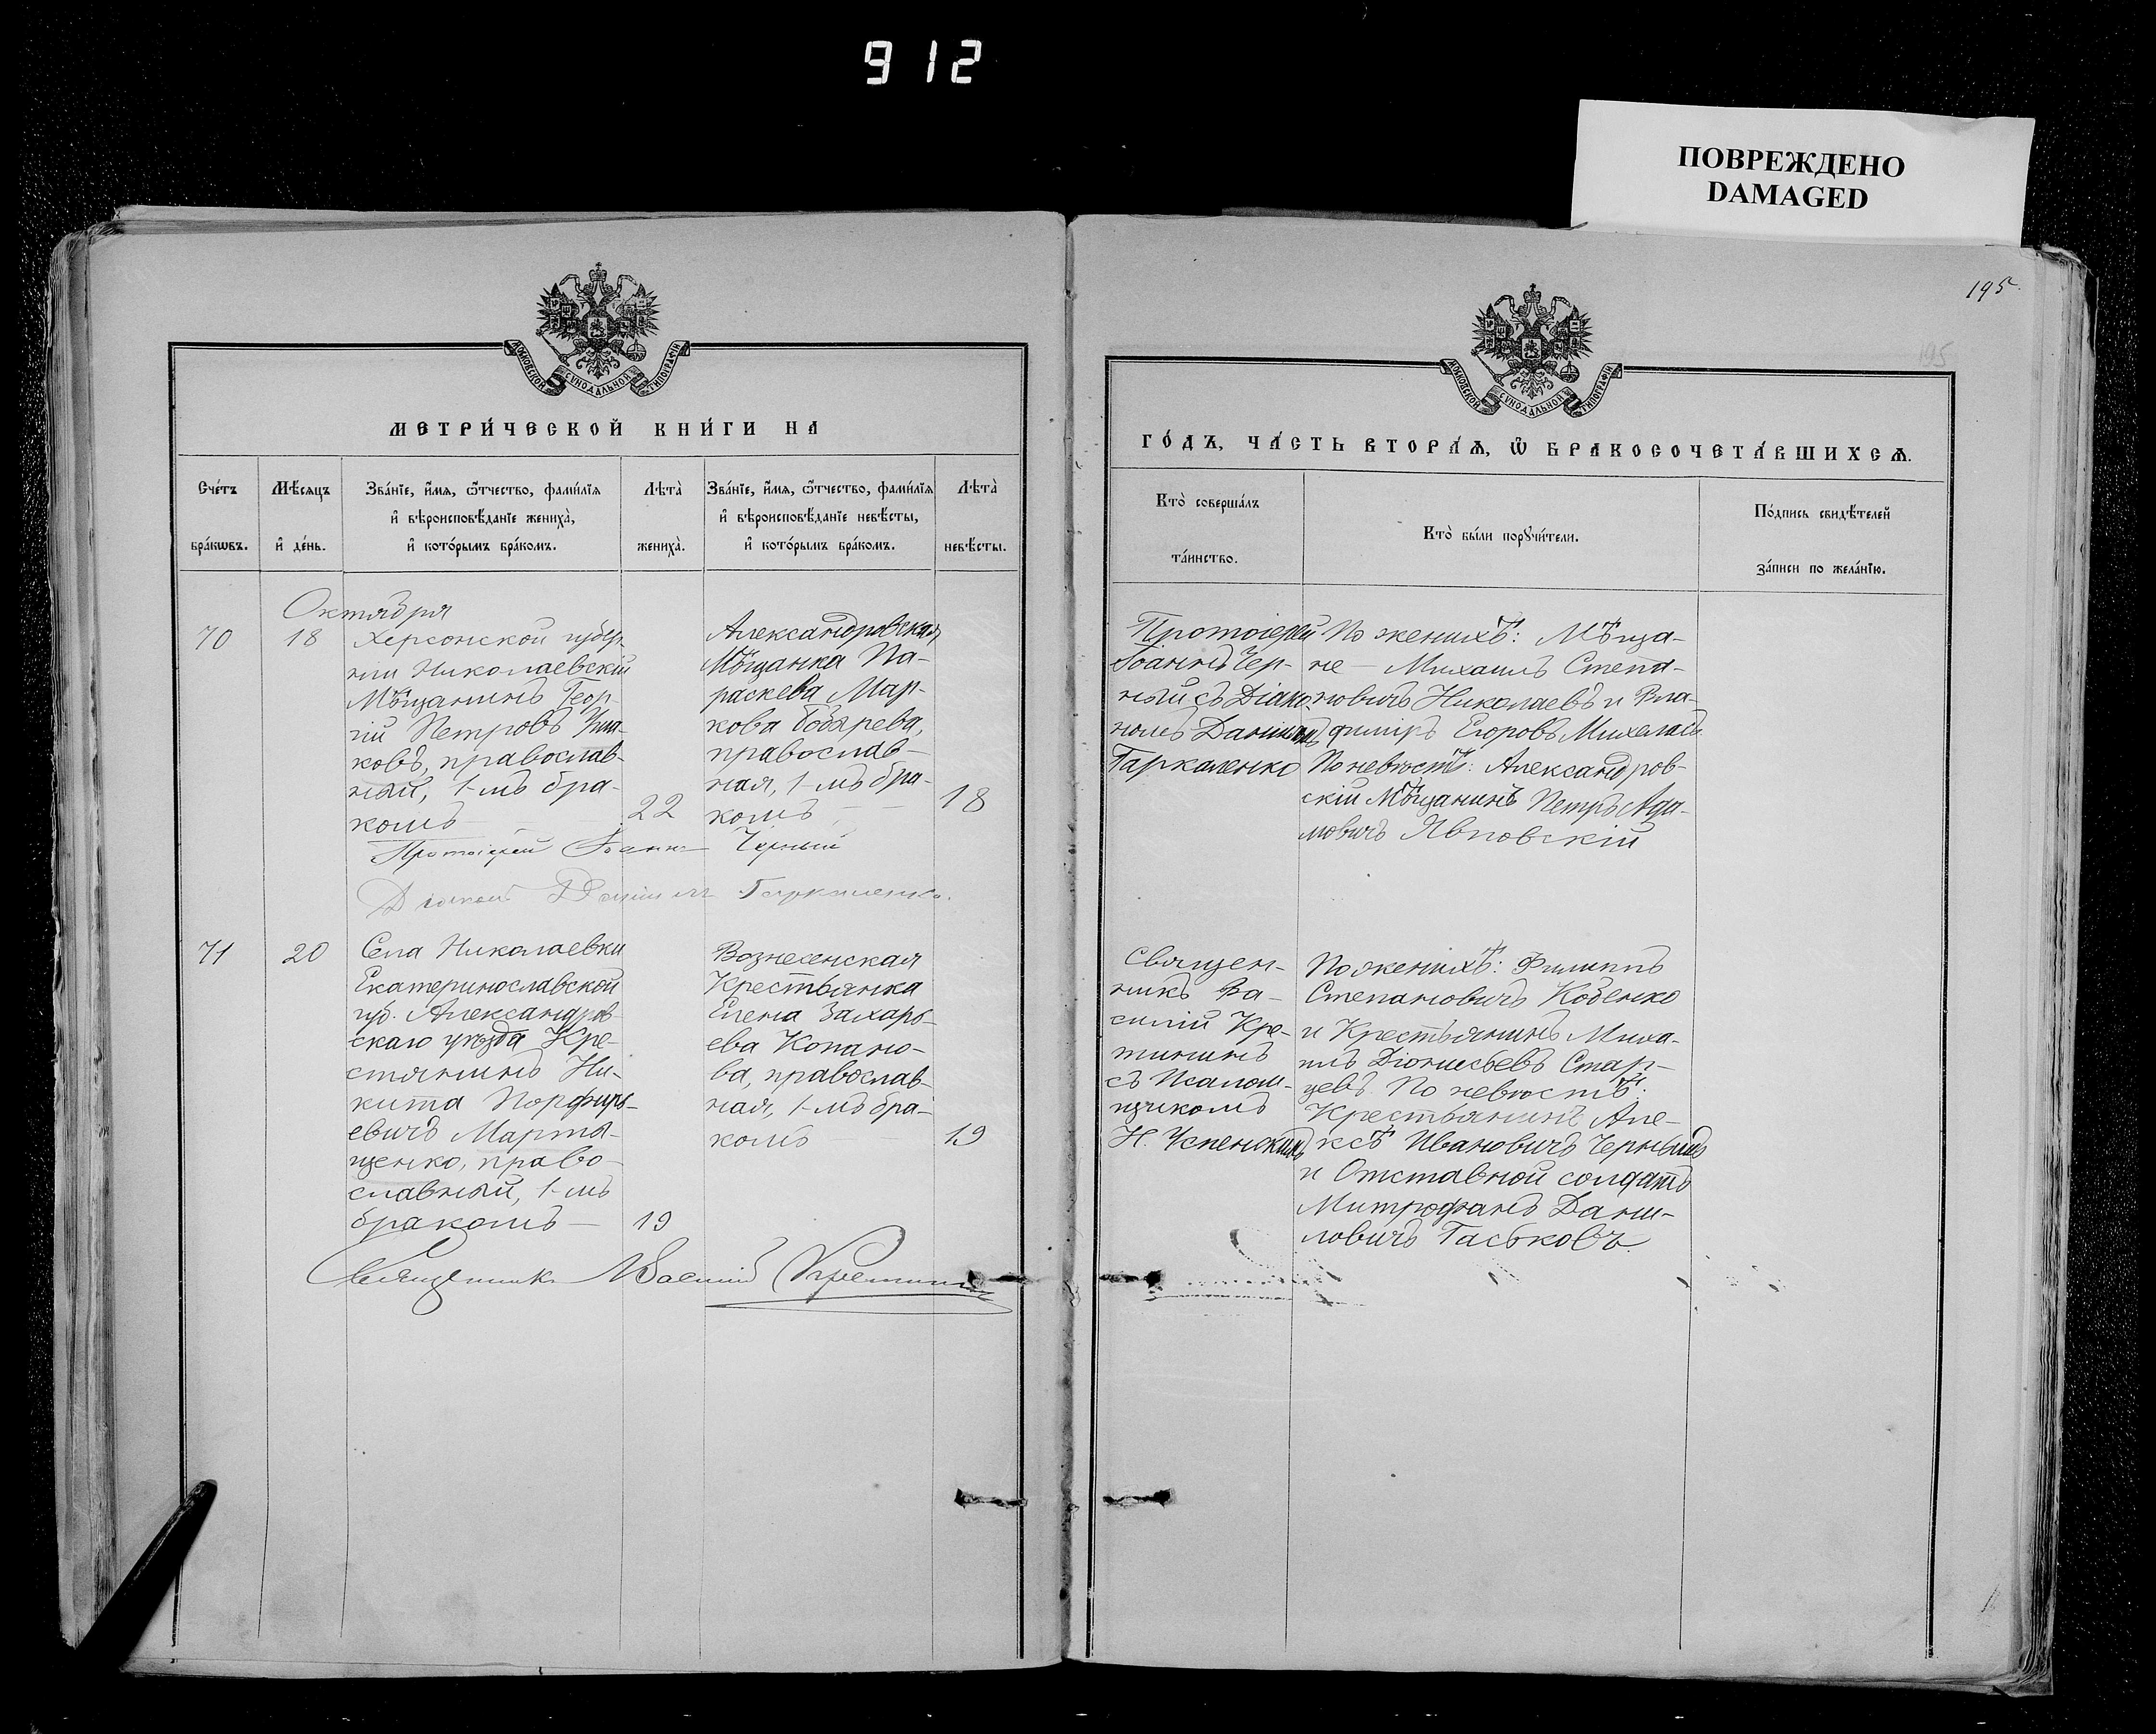 912
ПОВРЕЖДЕНО
DAMAGED
195.
195
МОСКОВСКОЙ СѴНОДАЛЬНОЙ ТИПОГРАФІИ
МЕТРИ́ЧЕСКОЙ КНИ́ГИ НА
Сче́тъ бра́кѡвъ.
Мѣ́сяцъ и҆ де́нь.
Зва́нїе, и҆́мѧ, ѻ҆́тчество, фами́лїѧ
и҆ вѣроисповѣ́данїе жениха̀,
и҆ кото́рымъ бра́комъ.
Лѣта̀ жениха̀.
Зва́нїе, и҆́мѧ, ѻ҆́тчество, фами́лїѧ
и҆ вѣроисповѣ́данїе невѣ́сты,
и҆ кото́рымъ бра́комъ.
Лѣта̀ невѣ́сты.
Октября
70
18
Херсонской губер-
ніи Николаевскій
Мѣщанинъ Геор-
гій Петровъ
ковъ, православ-
ный, 1-мъ бра-
комъ
22
Александровская
Мѣщанка Па-
раскева Мар-
кова
православ-
ная, 1-мъ бра-
комъ
18
Протоіерей Іоаннъ Черный
Діаконъ Даніилъ Гаркаленко.
71
20
Села Николаевки
Екатеринославской
губ. Александров-
скаго уѣзда Кре-
стянинъ Ни-
кита Порфирь-
евичъ Марты-
щенко, право-
славный, 1-мъ
бракомъ
19
Вознесенская
Крестьянка
Елена Захарь-
ева Копано-
ва, православ-
ная, 1-мъ бра-
комъ
19
Священникъ Василій Кретининъ
МОСКОВСКОЙ СѴНОДАЛЬНОЙ ТИПОГРАФІИ
ГО́ДЪ, ЧА́СТЬ ВТОРА́Ѧ, Ѡ҆ БРАКОСОЧЕТА́ВШИХСѦ.
Кто̀ соверша́лъ
та́инство.
Кто̀ бы́ли порꙋчи́тели.
По́дпись свидѣ́телей
за́писи по жела́нїю.
Протоіерей
Іоаннъ Чер-
ный съ Діако-
номъ Даніиломъ
Гаркаленко
По женихѣ: Мѣща-
не - Михаилъ Степа-
новичъ Николаевъ и Вла-
димиръ Егоровъ
По невѣстѣ: Александров-
скій Мѣщанинъ Петръ Ада-
мовичъ Явповскій
Священ-
никъ Ва-
силій Кре-
тининъ
съ Псалом-
щикомъ
Н. Успенскимъ
По женихѣ: Филиппъ
Степановичъ Кобенко
и Крестьянинъ Миха-
илъ Діонисьевъ Стар-
цевъ. По невѣстѣ:
Крестьянинъ Але-
ксѣй Ивановичъ
и Отставной солдатъ
Митрофанъ Дани-
ловичъ Гаськовъ.